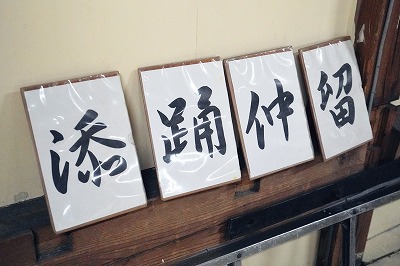 添踊仲留